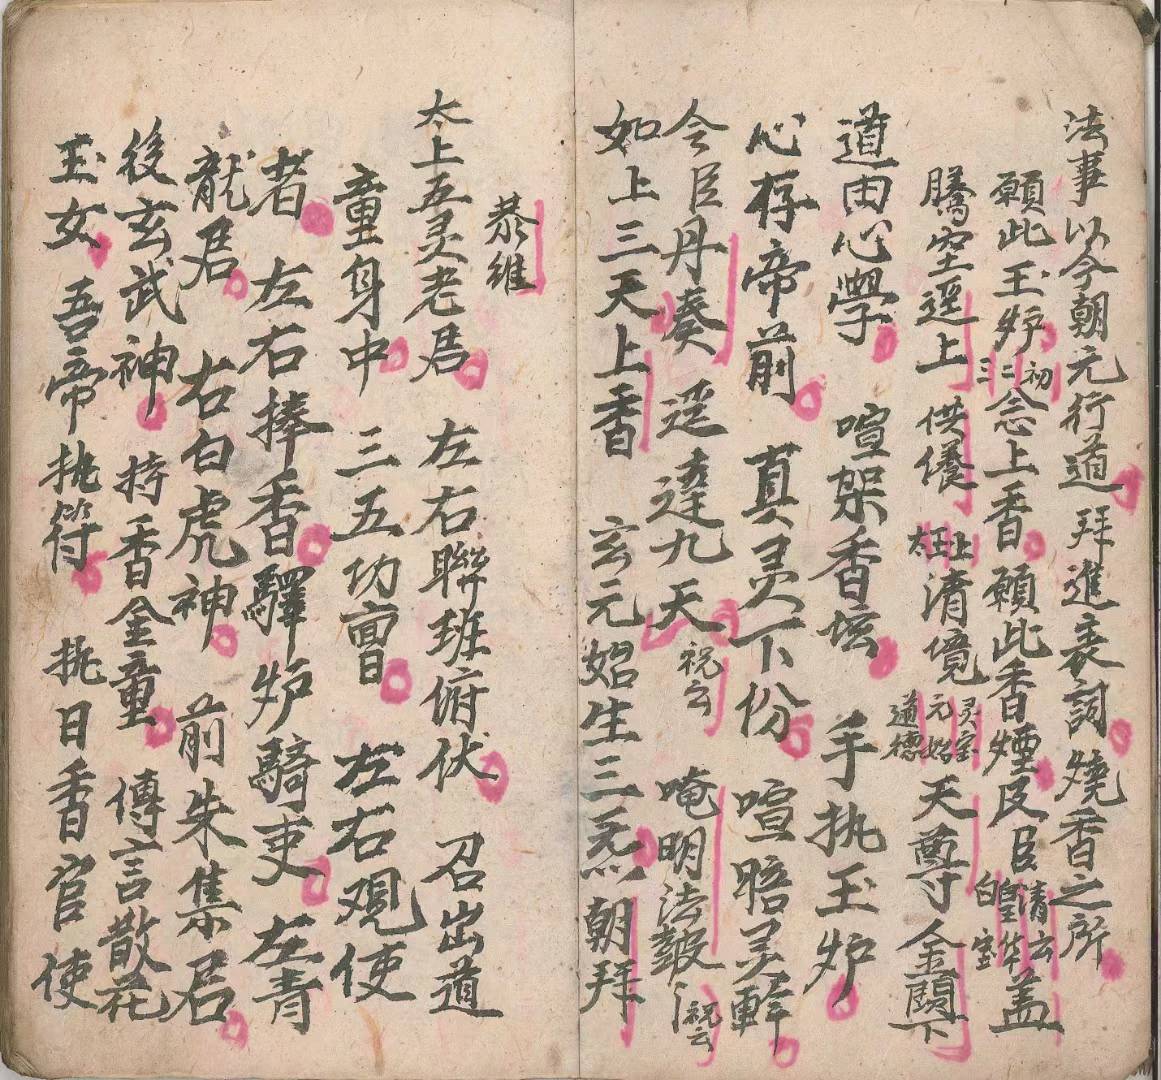 法事以今朝元行道拜進表詞燒香之所
願此玉炉初二三念上香願此香煙皈臣清玄皇华白宝盖
騰空逕上供養玉上太清境灵宝元始道德天尊金闕下
道由心學喧架香坛手执玉炉
心存帝前真灵下份喧晤灵軿
今臣丹奏逕達九天祝云唵明法皷祝云
如上三天上香玄元始生三炁朝拜
恭維
太上五灵老君左右聯班俯伏召出道
童身中三五功曹左右观使
者左右捧香驛炉騎吏左青
龍君右白虎神前朱集君
後玄武神持香金童傳言散花
玉女吾帝执符执日香官使